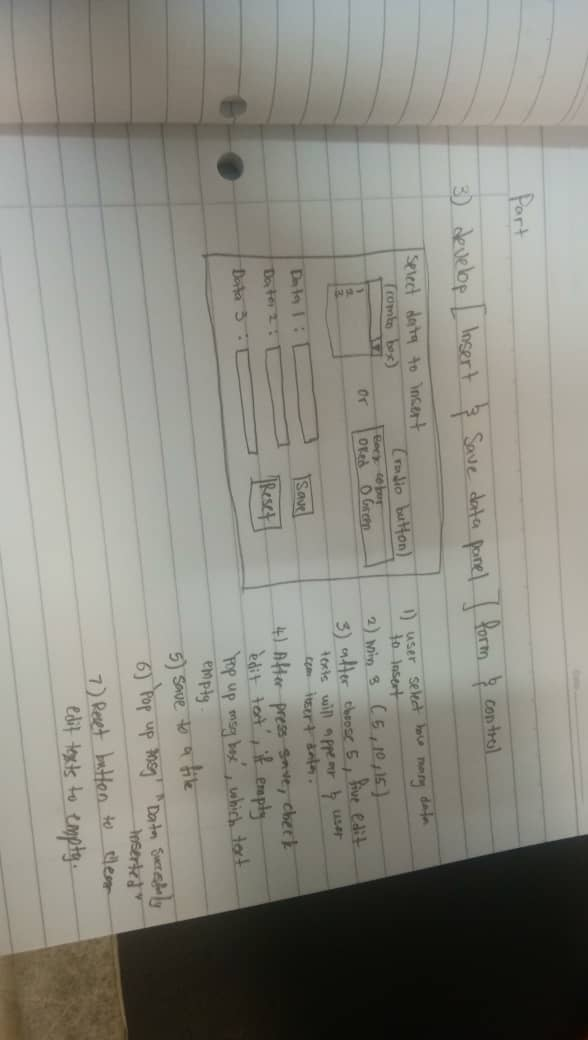 Part
3) develop [ Insert & Save data panel ] form & control
Select data to insert
(combo box)
(radio button)
1
2
3
or
Back colour
O Red O Green
Data 1 :
Data 2 :
Data 3 :
Save
Reset
1) user select how many data
to insert
2) min 3 (5, 10, 15)
3) after choose 5, five edit
texts will appear & user
can insert data.
4) After press save, check
'edit text', if empty
'Pop up msg box', which text
empty.
5) save to a file
6) Pop up msg "Data successfully
inserted"
7) Reset button to clean
edit texts to empty.